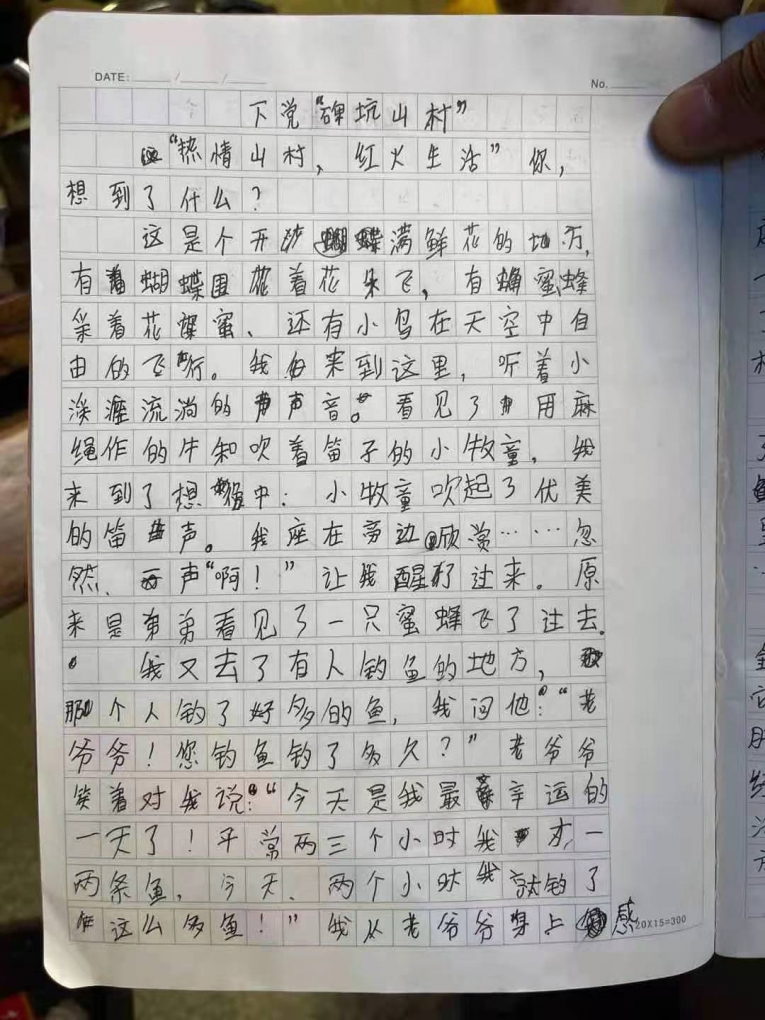 DATE: ____/____/____
No. ____
下说“碑坑山村”
“热情山村，红火生活”你，
想到了什么？
这是个开满鲜花的地方，
有蝴蝶围着花朵飞，有蜜蜂
采着花蜜、还有小鸟在天空中自
由的飞行。我来到这里，听着小
溪流淌的声音。看见了用麻
绳作的牛和吹着笛子的小牧童，我
来到了想中：小牧童吹起了优美
的笛声。我座在旁边欣赏……忽
然、一声“啊！”让我醒了过来。原
来是弟弟看见了一只蜜蜂飞了过去。
我又去了有人钓鱼的地方，
那个人钓了好多的鱼，我问他：“老
爷爷！您钓鱼钓了多久？”老爷爷
笑着对我说：“今天是我最幸运的
一天了！平常两三个小时我才一
两条鱼，今天、两个小时我就钓了
这么多鱼！”我从老爷爷身上感
20X15=300